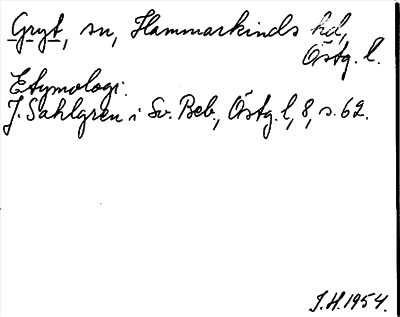 Gryt, sn, Hammarkinds hd,
Östg. l.
Etymologi.
J. Sahlgren i Sv. Beb., Östg. l, 8, s. 62.
I.H. 1954.